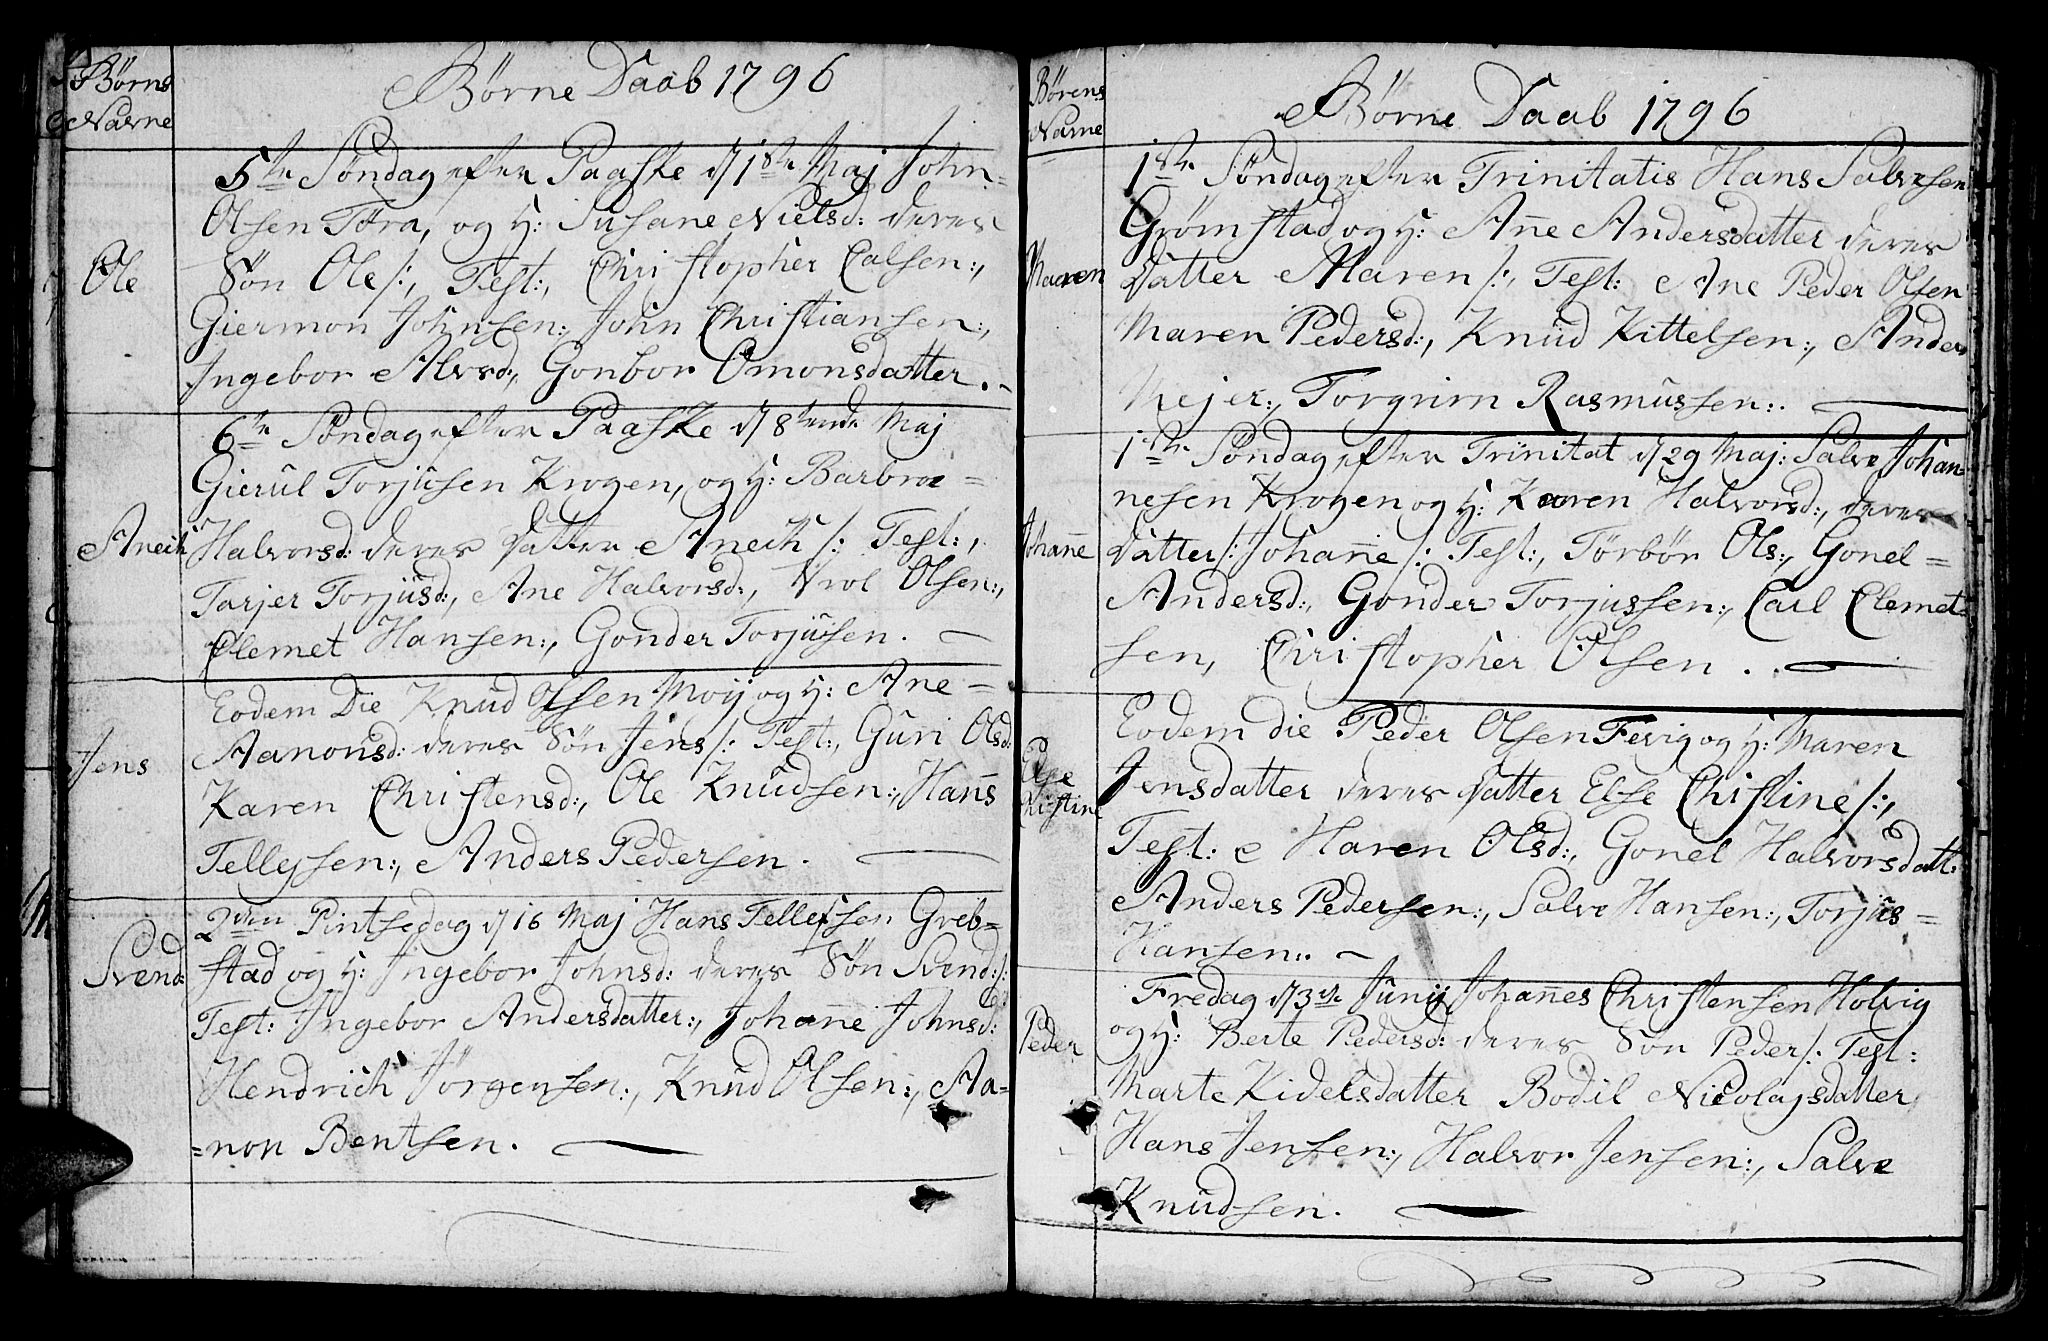 Børns
Navne
Børne Daab 1796
5te Søndag efter Paaske d/ 1ste Maj John
Olsen Tøra, og H: Susane Nielsd: deres
Ole
Søn Ole/:, Test:, Christopher Calsen:,
Giermon Johnsen:, John Christiansen:,
Ingebor Alvsd:, Gonbor Omonsdatter.
6te Søndag efter Paaske d/ 8tende Maj
Gierul Torjusen Krogen, og H: Barbroe
Anech
Halvorsd: deres Datter Anech /: Test:,
Tarjer Torjusd:, Ane Halvorsd:, Vrol Olsen:,
Clemet Hansen:, Gonder Torjusen.
Eodem Die Knud Olssen Moij og H: Ane
Aanonsd: deres Søn Jens/: Test:, Guri Olsd:
Jens
Karen Christensd:, Ole Knudsen:, Hans
Tellefsen:, Anders Pedersen.
2den Pintsedag d/ 16 Maj Hans Tellefssen Greb=
Svend
stad og H: Ingebor Johnsd: deres Søn Svend:/:
Test: Ingebor Andersdatter:, Johane Johnsd:
Hendrich Jørgensen:, Knud Olsen:, Aa=
=non Bentsen.
Børens
Navne
Børne Daab 1796
1ste Søndag efter Trinitatis Hans Salvesen
Grømstad og H: Ane Andersdatter deres
Maren
Datter Maren/:, Test: Ane Peder Olsen
Maren Pedersd:, Knud Kittelsen:, Anders
Mejer:, Torgrim Rasmussen:.
1ste Søndag efter Trinitat d/ 29 Maj: Salve Johan=
nesen Krogen og H: Karen Halvorsd:, deres
Johane
Datter/: Johane/: Test:, Tørbør Ols:, Gonel=
Andersd:, Gonder Torjussen:, Carl Clemet=
sen, Christopher Olsen.
Eodem die Peder Olsen Fevig og H: Maren
Else
Christine
Jensdatter deres Datter Else Christine/:,
Test: Maren Olsd:, Gonel Halvorsdatt:
Anders Pedersen:, Salve Hansen:, Torjus=
Hansen:.
Fredag d/ 3de Junij Johanes Christensen Holvig
Peder
og H: Berte Pedersd: deres Søn Peder/: Test:
Marte Kidelsdatter Bodil Nicolajsdatter
Hans Jensen:, Halvor Jensen:, Salve
Knudsen.